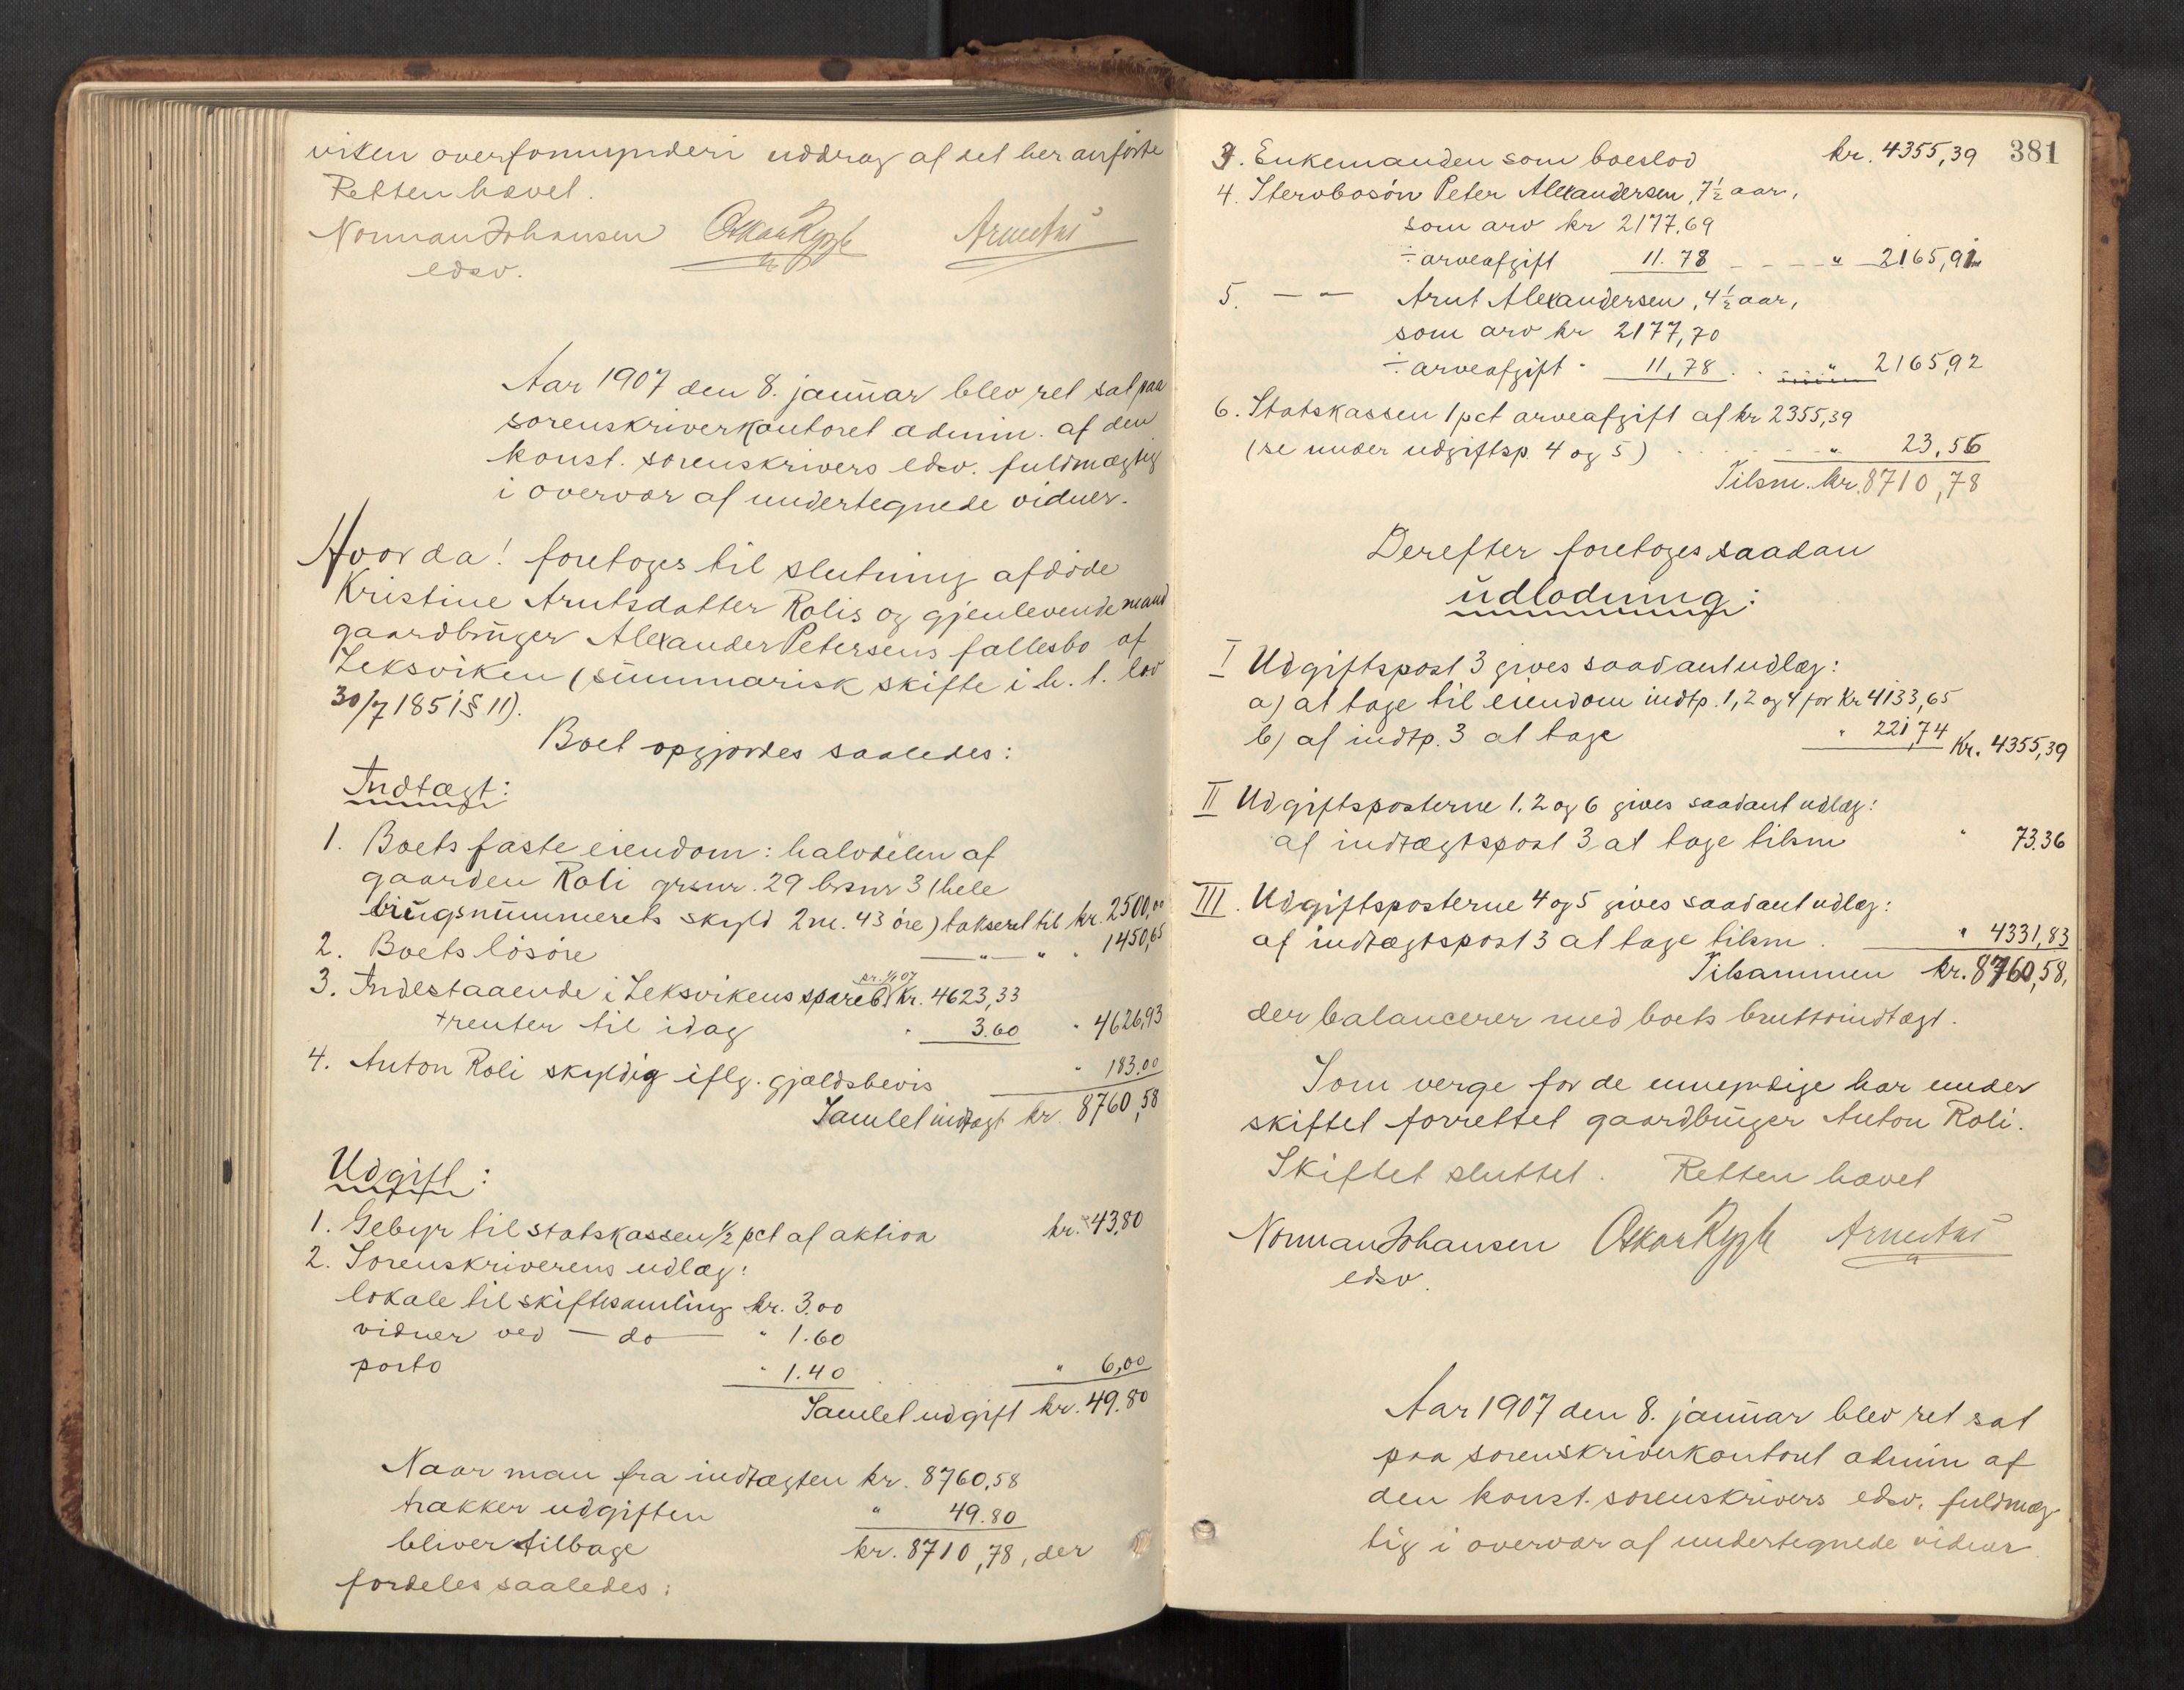 viken overformynderi uddrag af det her anførte
Retten hævet.
Norman Johansen Oskar Rygh
edsv.
Aar 1907 den 8. januar blev ret sat paa
sorenskriverkontoret admin. af den
konst. sorenskrivers edsv. fuldmægtig
i overvær af undertegnede vidner.
Hvor da! foretoges til slutning afdøde
Kristine Arntsdatter Rolis og gjenlevende mand
gaardbruger Alexander Petersens fællesbo af
Leksviken (summarisk skifte i h. t. lov
30/7 1851 § 11).
Boet opgjordes saaledes:
Indtægt:
1. Boets faste eiendom: halvdelen af
gaarden Roli grsnr. 29 brsnr 3 (hele
brugsnummerets skyld 2 m. 43 øre) takseret til kr. 2500,00
2. Boets løsøre —„— „ „ 1450,65
3. Indestaaende i Leksvikens spareb. pr. 1/1 07 kr. 4623,33
+ renter til idag „ 3.60 „ 4626,93
4. Anton Roli skyldig iflg. gjældsbevis „ 183.00
Samlet indtægt kr. 8760,58
Udgift:
1. Gebyr til statskassen ½ pct af aktiva kr. 43,80
2. Sorenskriverens udlæg:
lokale til skiftesamling kr. 3.00
vidner ved — do — „ 1.60
porto „ 1.40 „ 6,00
Samlet udgift kr. 49.80
Naar man fra indtægten kr. 8760,58
trækker udgiften „ 49.80
bliver tilbage kr. 8710,78, der
fordeles saaledes:
381
3. Enkemanden som boeslod kr. 4355,39
4. Stervbosøn Peter Alexandersen, 7½ aar,
som arv kr 2177,69
÷ arveafgift 11.78 „ 2165,91
5. — „ — Arnt Alexandersen, 4½ aar,
som arv kr 2177,70
÷ arveafgift „ 11,78 „ 2165,92
6. Statskassen 1 pct arveafgift af kr 2355,39
(se under udgiftsp. 4 og 5) „ 23,56
Tilsm. kr. 8710,78
Derefter foretoges saadan
udlodning:
I Udgiftspost 3 gives saadant udlæg:
a) at tage til eiendom indtp. 1, 2 og 4 for Kr 4133,65
b) af indtp. 3 at tage „ 221,74 Kr. 4355,39
II Udgiftsposterne 1. 2 og 6 gives saadant udlæg:
af indtægtspost 3 at tage tilsm „ 73.36
III. Udgiftsposterne 4 og 5 gives saadant udlæg:
af indtægtspost 3 at tage tilsm. „ 4331,83
Tilsammen kr. 8760,58,
der balancerer med boets bruttoindtægt.
Som verge for de umyndige har under
skiftet forrettet gaardbruger Anton Roli.
Skiftet sluttet. Retten hævet
Norman Johansen Oskar Rygh
edsv.
Aar 1907 den 8. januar blev ret sat
paa sorenskriverkontoret admin af
den konst. sorenskrivers edsv. fuldmæg-
tig i overvær af undertegnede vidner